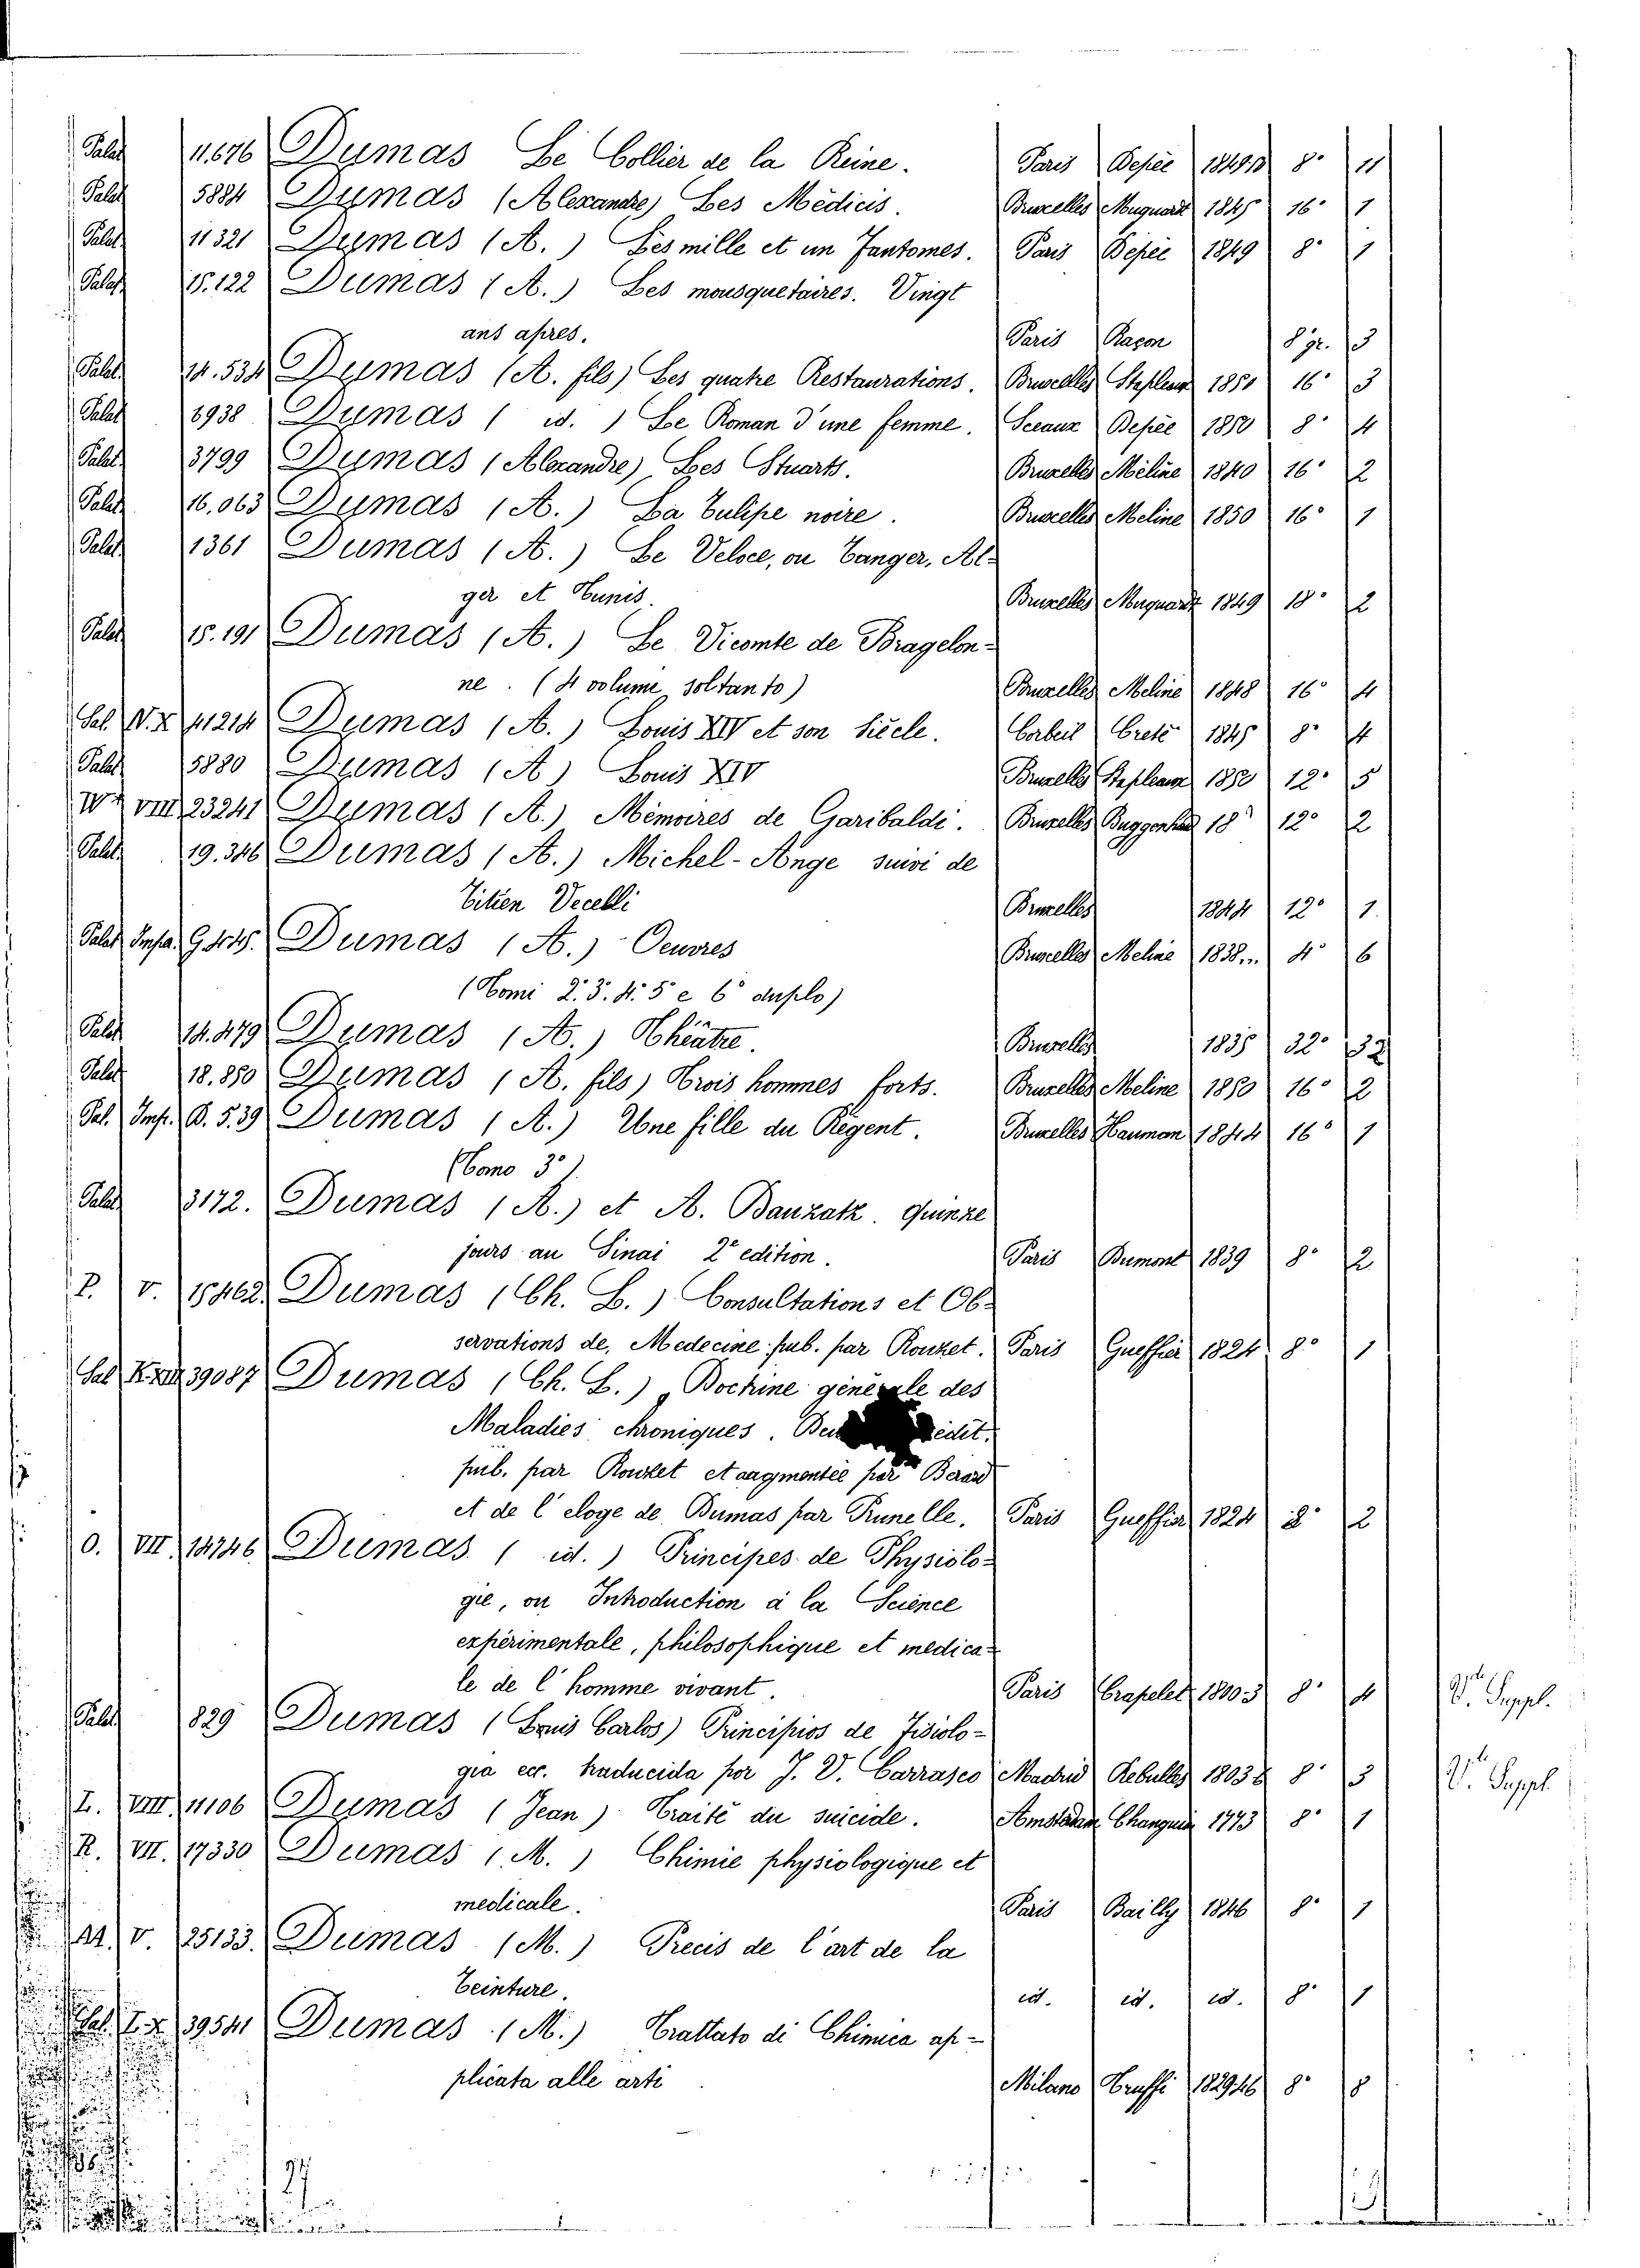 Palat 11.676 Dumas Le Collier de la Reine. Paris Depée 1849.50 8° 11
Palat 5884 Dumas (Alexandre) Les Médicis. Bruxelles Muquardt 1845 16° 1
Palat 11321 Dumas (A.) Les mille et un Fantomes. Paris Depée 1849 8° 1
Palat 15.122 Dumas (A.) Les mousquetaires. Vingt
ans apres. Paris Raçon 8 gr. 3
Palat 14.534 Dumas (A. fils) Les quatre Restaurations. Bruxelles Stapleaux 1851 16° 3
Palat 6938 Dumas ( id. ) Le Roman d'une femme. Sceaux Depée 1850 8° 4
Palat 3799 Dumas (Alexandre) Les Stuarts. Bruxelles Méline 1840 16° 2
Palat 16.063 Dumas (A.) La Tulipe noire. Bruxelles Meline 1850 16° 1
Palat 1361 Dumas (A.) Le Veloce, ou Tanger, Al-
ger et Tunis. Bruxelles Muquardt 1849 18° 2
Palat 15.191 Dumas (A.) Le Vicomte de Bragelon-
ne. (4 volume soltanto) Bruxelles Meline 1848 16° 4
Sal. V. X 41214 Dumas (A.) Louis XIV et son Siècle. Corbeil Creté 1845 8° 4
Palat 5880 Dumas (A) Louis XIV Bruxelles Stapleaux 1850 12° 5
VIII 23241 Dumas (A.) Mémoires de Garibaldi. Bruxelles 18 12° 2
Palat. 19.346 Dumas (A.) Michel-Ange suivi de
Titien Vecelli Bruxelles 1844 12° 1.
Palat Dumas (A.) Oeuvres Bruxelles Meline 1838... 4° 6
(Tomi 2.° 3.° 4.° 5° e 6° duplo)
Palat 14.479 Dumas (A.) Théâtre. Bruxelles 1835 32° 32
Palat 18.850 Dumas (A. fils) Trois hommes forts. Bruxelles Meline 1850 16° 2
Pal. Imp. D. 5.39 Dumas (A.) Une fille du Régent. Bruxelles Hauman 1844 16° 1
(Tomo 3°)
Palat 3172. Dumas (A.) et A. Dauzatz. Quinze
jours au Sinai 2e edition. Paris Dumont 1839 8° 2
P. V. 15462. Dumas (Ch. L.) Consultations et Ob-
servations de, Medecine pub. par Rouzet. Paris Gueffier 1824 8° 1
Sal 39087 Dumas (Ch. L.) Doctrine générale des
Maladies chroniques. edit.
pub. par Rouzet et augmentée par Berard
et de l'eloge de Dumas par Prunelle. Paris Gueffier 1824 8° 2
O. VII. 14746 Dumas ( id. ) Principes de Physiolo-
gie, ou Introduction à la Science
expérimentale, philosophique et medica-
le de l'homme vivant. Paris Crapelet 1800-3 8° 4 V.te Suppl.
Palat 829 Dumas (Louis Carlos) Principios de Fisiolo-
gia ecc. traducida por J. V. Carrasco Madrid Rebulles 1803 8° 3 V.te Suppl.
L. VIII. 11106 Dumas (Jean) Traité du suicide. Amsterdam Changuion 1773 8° 1
R. VII. 17330 Dumas (M.) Chimie physiologique et
medicale. Paris Bailly 1846 8° 1
V. 25133. Dumas (M.) Precis de l'art de la
Teinture. id. id. id. 8° 1
39541 Dumas (M.) Trattato di Chimica ap-
plicata alle arti Milano Truffi 8° 8